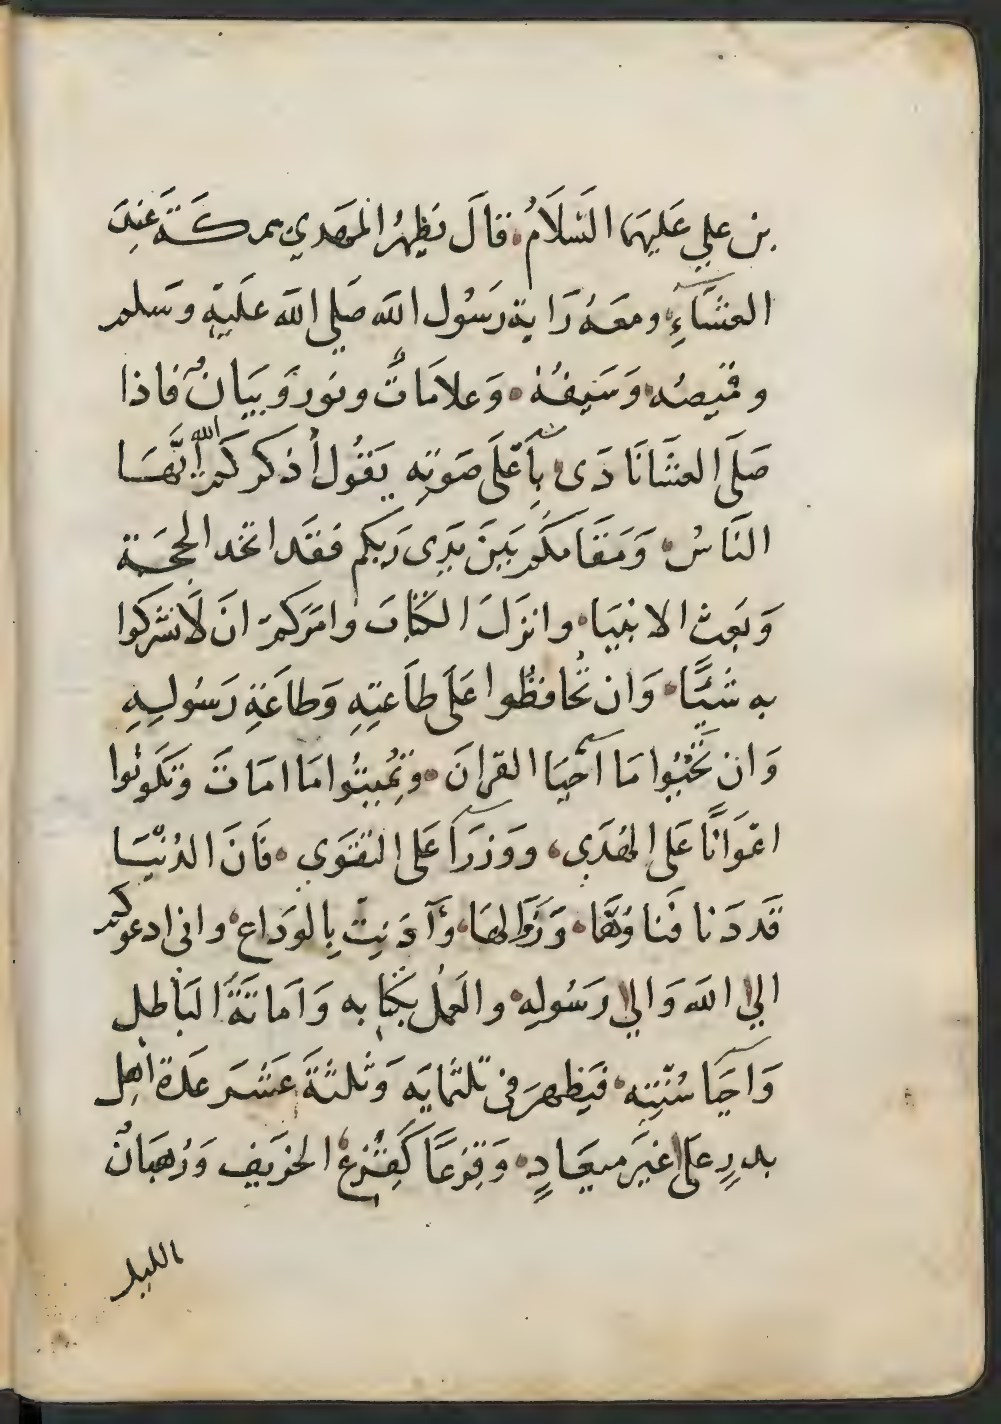 بن علي عَليهما السَلَامُ قالَ يَظهرُ المهدي بمركة عِندَ
العشَآءِ ومعَهُ رَاية رَسُول الله صَلي الله عَليهِ وسَلم
وقميصُه وَسَيفهُ وَعلامَاتٌ ونور وَبيَانٌ فاذا
صَلَى العشَا نَادَى بِاَعْلَى صَوتِه يَقُول أذكركم الله اَيّهَا
النَاسُ وَمَقَامكم بَينَ يَدى رَبكم فقَد اتخد الحجَة
وَبَعث الانبيَا وانزَلَ الكتَابَ وامَركم انَ لَا تشركوا
به شيًَا وَان تُحَافظُوا عَلَى طاَعتِهِ وَطاعَةِ رَسُولِهِ
وَان تحُيُوا مَا اَحيَا القرانَ وَتُميتُوا مَا امَاتَ وَتكوَنُوا
اعْوَانًا عَلى الهُدَي ووزرَاَ عَلى التقوَي فَانَ الدُنيَا
قَد دَنا فنَاوُهَا وَزوَالهَا وَآدَنِتْ بِالوَداع وانى ادعوكم
الي الله وَالي رَسُولِه والعَمل بكتَابه وَامَاتَةَ البَاطل
وَاَحيَا سُنّتِه فيَظهرَ فى ثلثمايَه وَثلثةَ عَشَر عَدة اَهل
بدرٍ علَى غيَر ميعَادٍ وَقزعَاً كَقزع الخَريف وَرُهبَانٌ
الليل